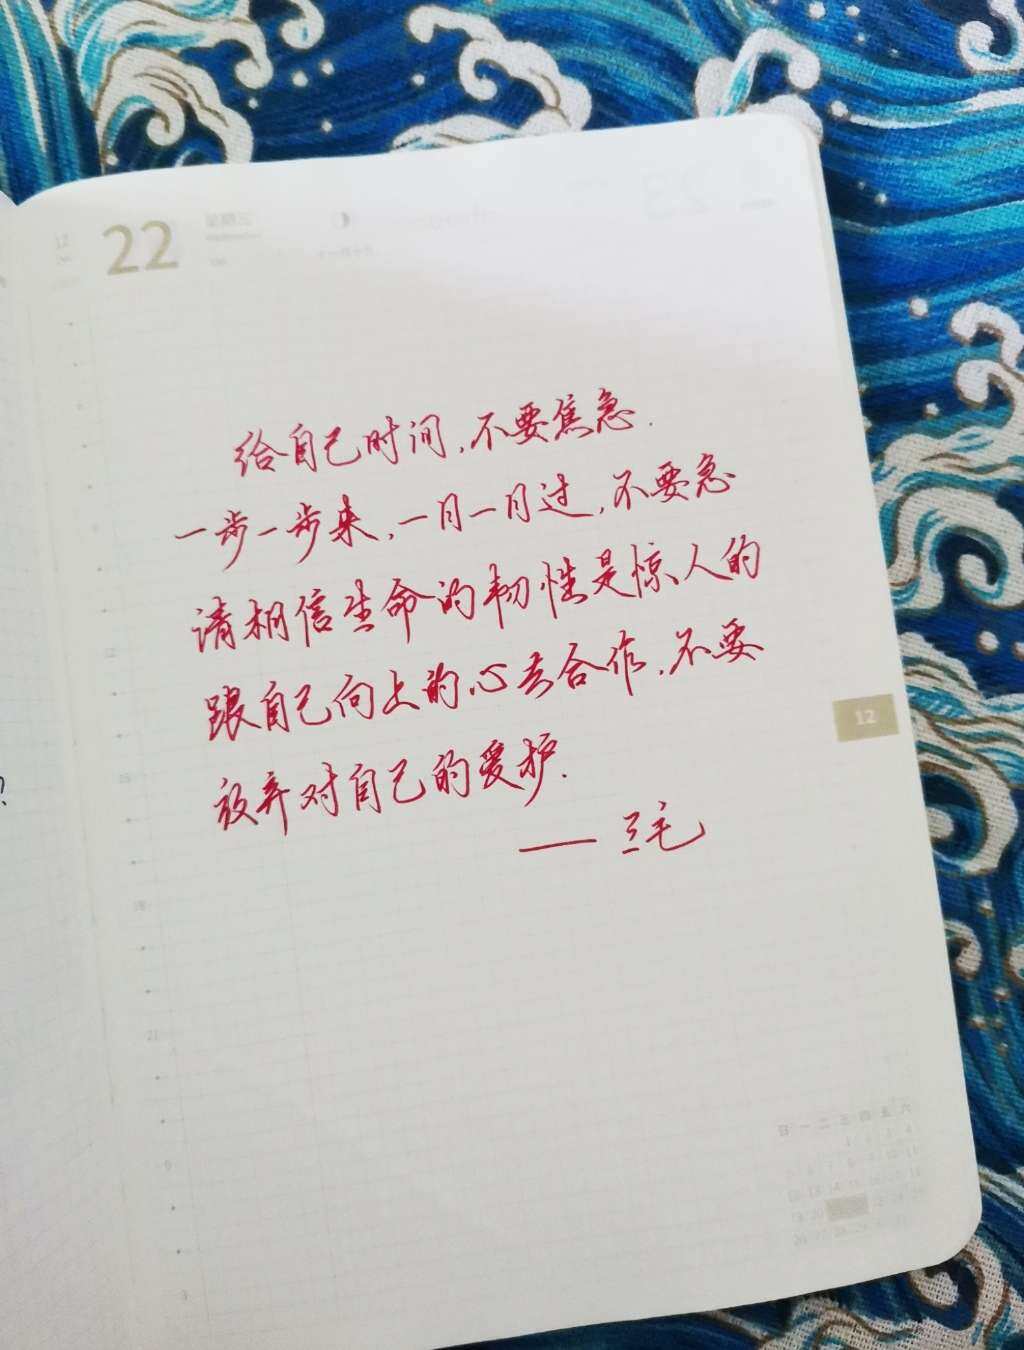 22
给自己时间,不要焦急.
一步一步来,一日一日过,不要急
请相信生命的韧性是惊人的
跟自己向上的心去合作,不要
放弃对自己的爱护.
—— 三毛
12